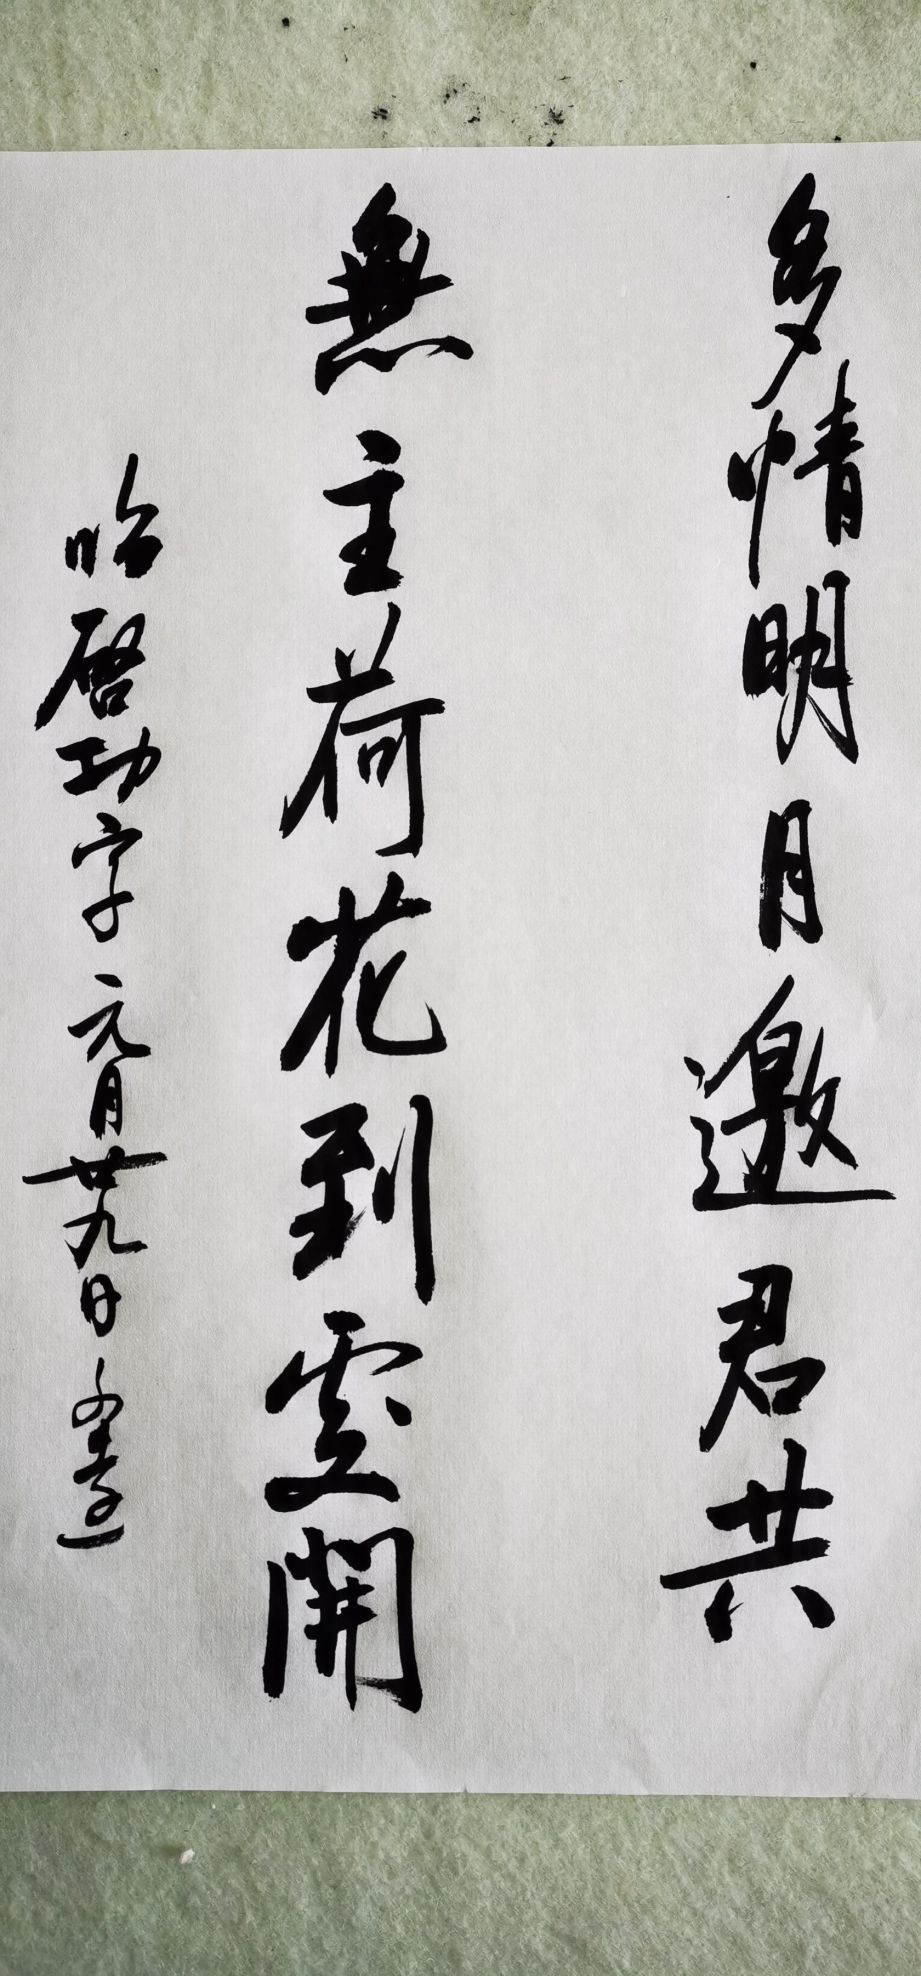 多情明月邀君共
無主荷花到處開
啓功字 元月廿九日